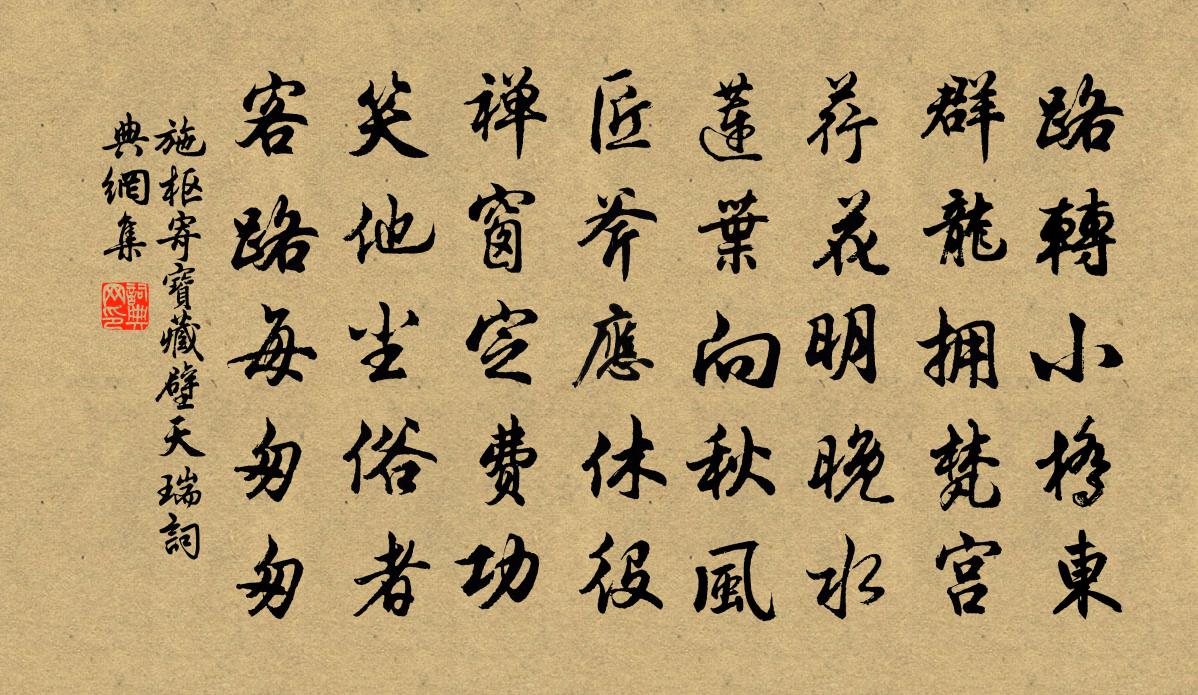 路轉小橋東
群龍拥梵宫
荇花明晚水
蓮葉向秋風
匠斧應休役
禅窗定费功
笑他尘俗者
客路每匆匆
施枢寄寶藏壁天瑞詞
典網集
詞典网印